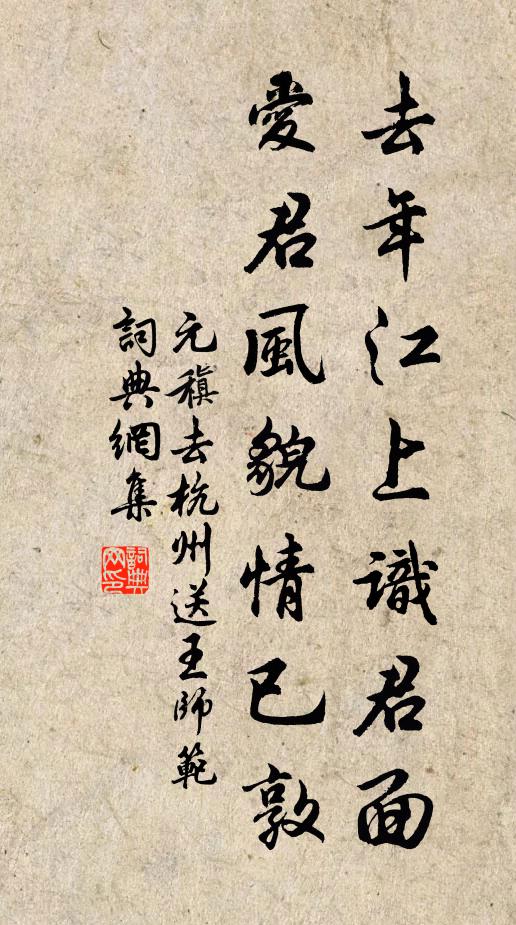 去年江上識君面
愛君風貌情已敦
元稹去杭州送王師範
詞典網集
詞典网印